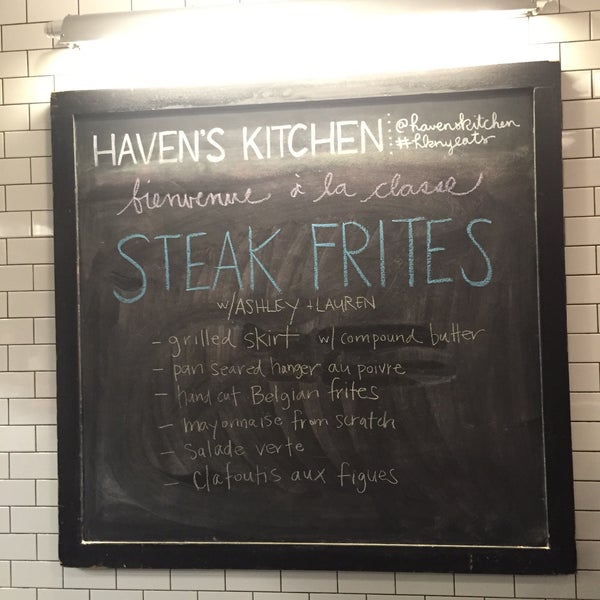 HAVEN'S KITCHEN
@havenskitchen
#hknyeats
bienvenue à la classe
STEAK FRITES
w/ASHLEY + LAUREN
- grilled skirt w/ compound butter
- pan seared hanger au poivre
- hand cut Belgian frites
- mayonnaise from scratch
- salade verte
- clafoutis aux figues